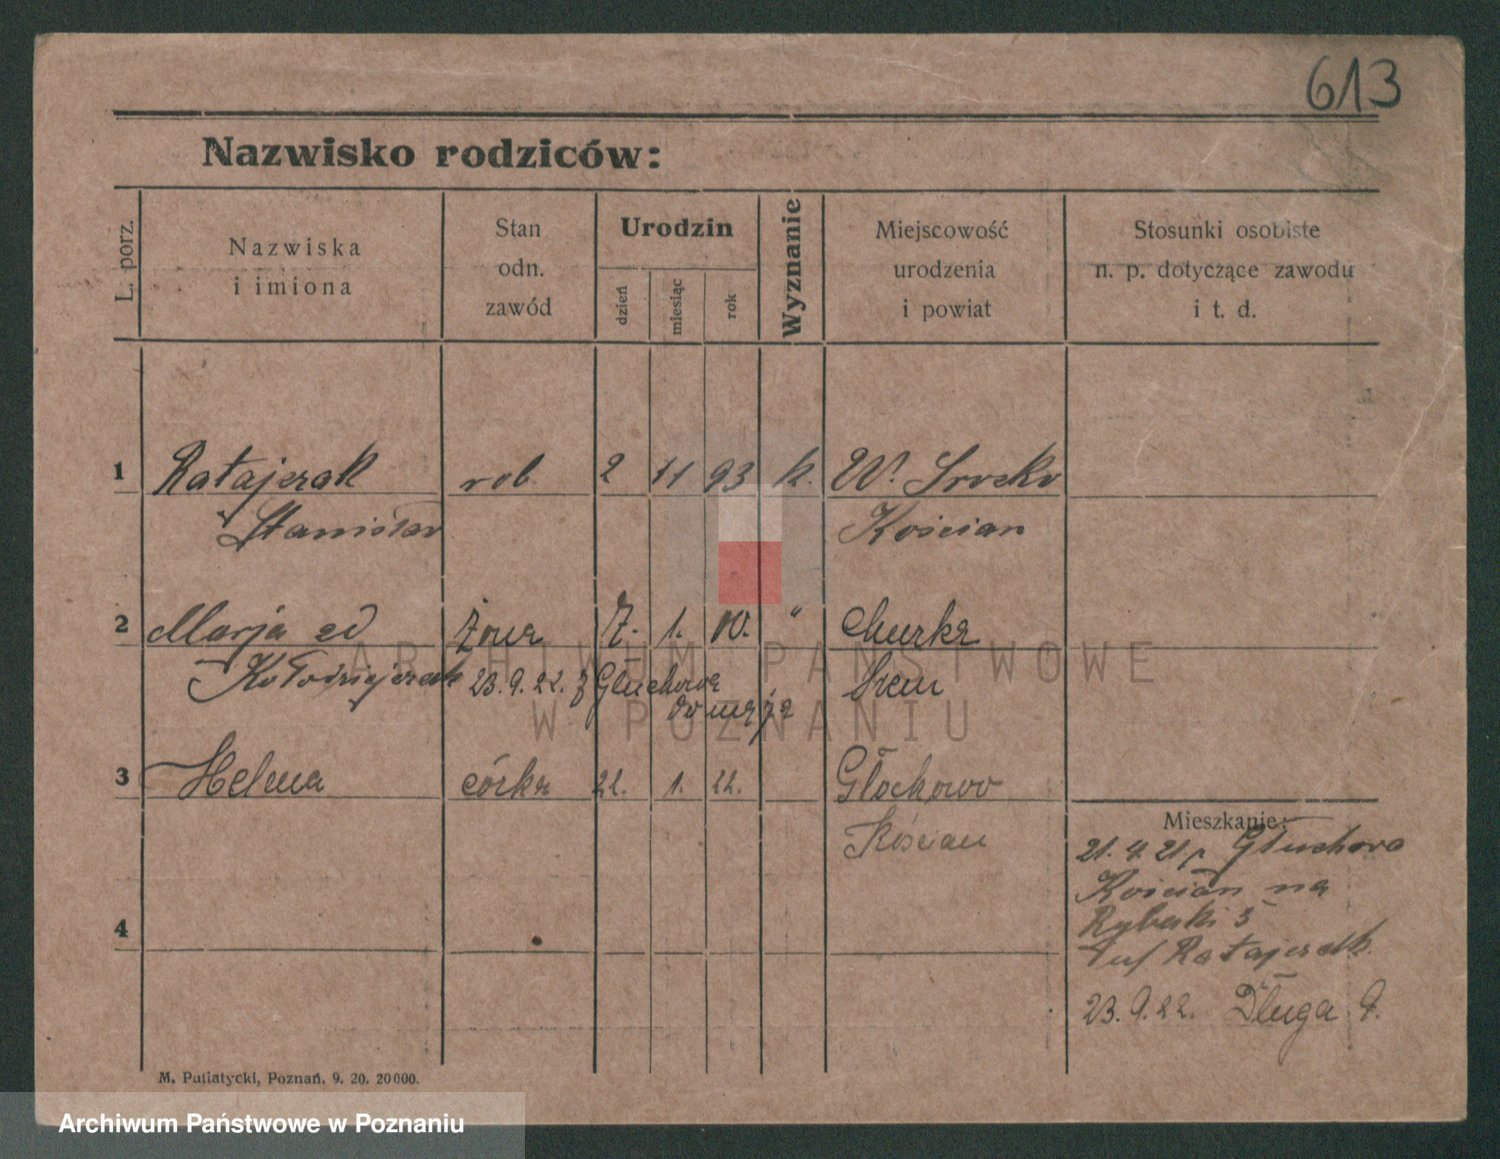 613
Nazwisko rodziców:
L. porz.
Nazwiska
i imiona
Stan
odn.
zawód
Urodzin
dzień
miesiąc
rok
Wyznanie
Miejscowość
urodzenia
i powiat
Stosunki osobiste
n. p. dotyczące zawodu
i t. d.
1 Ratajczak rob 2 11 93 k. W. Srocko
Stanisław Kościan
2 Marja zd Żona 7. 1. 00. "
Kołodziejczak 23.9.22. z Głuchowa Śrem
do męża
3 Helena córka 22. 1. 22. Głochowo
Kościan
Mieszkanie:
21.4.21 Głuchova
Kościan na
Rybaki 5
Ratajczak
4
23.9.22. Długa 9.
M. Putiatycki, Poznań. 9. 20. 20000.
ARCHIWUM PAŃSTWOWE
W POZNANIU
Archiwum Państwowe w Poznaniu